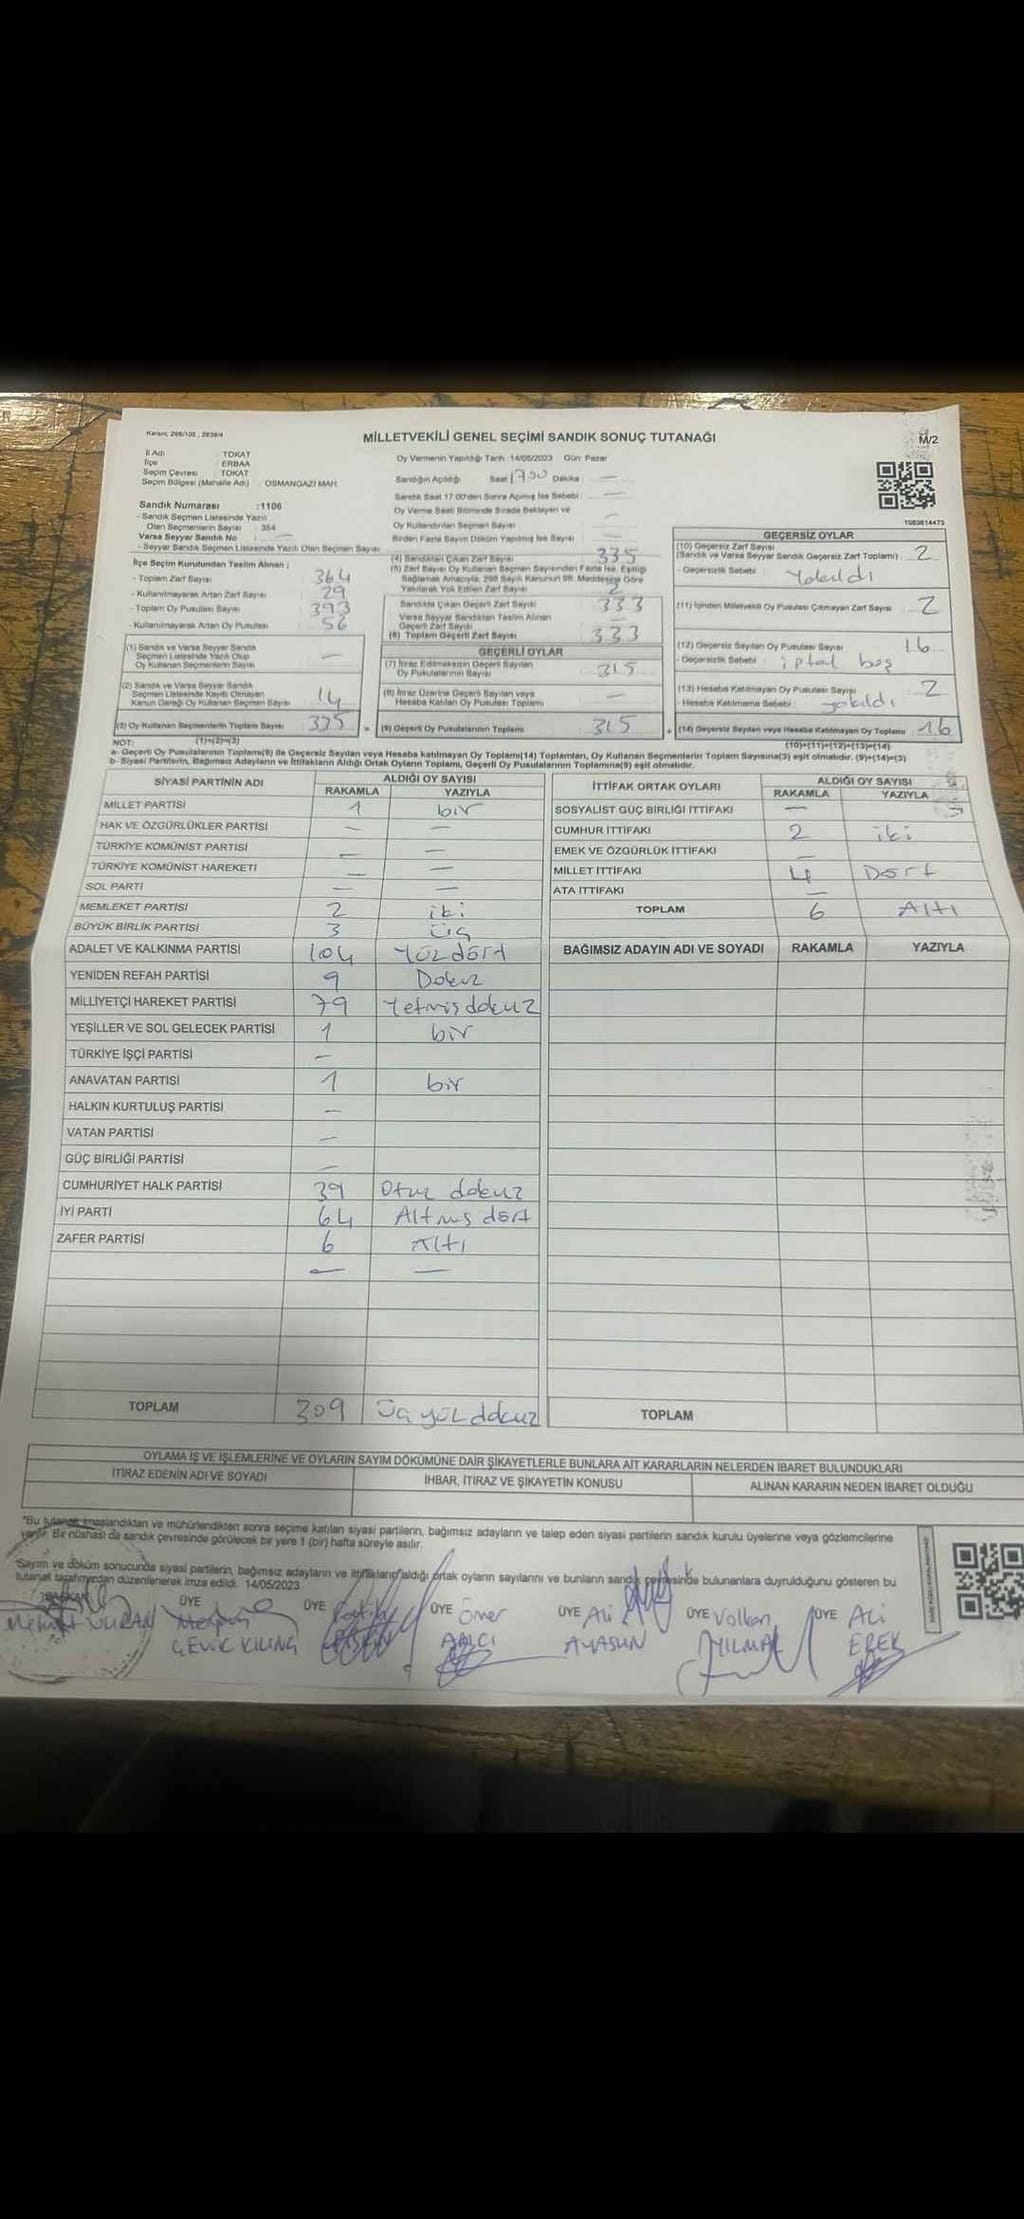 Kanun: 298/105, 2839/4
MİLLETVEKİLİ GENEL SEÇİMİ SANDIK SONUÇ TUTANAĞI
M/2
İl Adı : TOKAT
İlçe : ERBAA
Seçim Çevresi : TOKAT
Seçim Bölgesi (Mahalle Adı) : OSMANGAZİ MAH.
Oy Vermenin Yapıldığı Tarih :14/05/2023 Gün: Pazar
Sandığın Açıldığı Saat 1700 Dakika : —
Sandık Saat 17.00'den Sonra Açılmış İse Sebebi : —
Oy Verme Saati Bitiminde Sırada Bekleyen ve
Oy Kullandırılan Seçmen Sayısı —
Birden Fazla Sayım Döküm Yapılmış İse Sayısı —
1083614473
Sandık Numarası :1106
- Sandık Seçmen Listesinde Yazılı
Olan Seçmenlerin Sayısı : 354
Varsa Seyyar Sandık No —
- Seyyar Sandık Seçmen Listesinde Yazılı Olan Seçmen Sayısı
İlçe Seçim Kurulundan Teslim Alınan ;
- Toplam Zarf Sayısı 364
- Kullanılmayarak Artan Zarf Sayısı 29
- Toplam Oy Pusulası Sayısı 393
- Kullanılmayarak Artan Oy Pusulası 56
(1) Sandık ve Varsa Seyyar Sandık
Seçmen Listesinde Yazılı Olup
Oy Kullanan Seçmenlerin Sayısı —
(2) Sandık ve Varsa Seyyar Sandık
Seçmen Listesinde Kayıtlı Olmayan
Kanun Gereği Oy Kullanan Seçmen Sayısı 14
(3) Oy Kullanan Seçmenlerin Toplam Sayısı 335
(1)+(2)=(3)
(4) Sandıktan Çıkan Zarf Sayısı 335
(5) Zarf Sayısı Oy Kullanan Seçmen Sayısından Fazla İse, Eşitliği
Sağlamak Amacıyla, 298 Sayılı Kanunun 98. Maddesine Göre
Yakılarak Yok Edilen Zarf Sayısı 2
Sandıkta Çıkan Geçerli Zarf Sayısı 333
Varsa Seyyar Sandıktan Teslim Alınan
Geçerli Zarf Sayısı —
(6) Toplam Geçerli Zarf Sayısı 333
GEÇERLİ OYLAR
(7) İtiraz Edilmeksizin Geçerli Sayılan
Oy Pusulalarının Sayısı 315
(8) İtiraz Üzerine Geçerli Sayılan veya
Hesaba Katılan Oy Pusulası Toplamı —
= (9) Geçerli Oy Pusulalarının Toplamı 315
GEÇERSİZ OYLAR
(10) Geçersiz Zarf Sayısı
(Sandık ve Varsa Seyyar Sandık Geçersiz Zarf Toplamı) 2
- Geçersizlik Sebebi : Yakıldı
(11) İçinden Milletvekili Oy Pusulası Çıkmayan Zarf Sayısı 2
(12) Geçersiz Sayılan Oy Pusulası Sayısı 16
- Geçersizlik Sebebi : iptal boş
(13) Hesaba Katılmayan Oy Pusulası Sayısı 2
- Hesaba Katılmama Sebebi : yakıldı
+ (14) Geçersiz Sayılan veya Hesaba Katılmayan Oy Toplamı : 16
(10)+(11)+(12)+(13)=(14)
NOT:
a- Geçerli Oy Pusulalarının Toplamı(9) ile Geçersiz Sayılan veya Hesaba katılmayan Oy Toplamı(14) Toplamları, Oy Kullanan Seçmenlerin Toplam Sayısına(3) eşit olmalıdır. (9)+(14)=(3)
b- Siyasi Partilerin, Bağımsız Adayların ve İttifakların Aldığı Ortak Oyların Toplamı, Geçerli Oy Pusulalarının Toplamına(9) eşit olmalıdır.
SİYASİ PARTİNİN ADI ALDIĞI OY SAYISI
RAKAMLA YAZIYLA
MİLLET PARTİSİ 1 bir
HAK VE ÖZGÜRLÜKLER PARTİSİ — —
TÜRKİYE KOMÜNİST PARTİSİ — —
TÜRKİYE KOMÜNİST HAREKETİ — —
SOL PARTİ — —
MEMLEKET PARTİSİ 2 iki
BÜYÜK BİRLİK PARTİSİ 3 üç
ADALET VE KALKINMA PARTİSİ 104 Yüzdört
YENİDEN REFAH PARTİSİ 9 Dokuz
MİLLİYETÇİ HAREKET PARTİSİ 79 Yetmişdokuz
YEŞİLLER VE SOL GELECEK PARTİSİ 1 bir
TÜRKİYE İŞÇİ PARTİSİ —
ANAVATAN PARTİSİ 1 bir
HALKIN KURTULUŞ PARTİSİ —
VATAN PARTİSİ —
GÜÇ BİRLİĞİ PARTİSİ —
CUMHURİYET HALK PARTİSİ 39 Otuz dokuz
İYİ PARTİ 64 Altmış dört
ZAFER PARTİSİ 6 Altı
— —
TOPLAM 309 Üçyüz dokuz
İTTİFAK ORTAK OYLARI ALDIĞI OY SAYISI
RAKAMLA YAZIYLA
SOSYALİST GÜÇ BİRLİĞİ İTTİFAKI —
CUMHUR İTTİFAKI 2 iki
EMEK VE ÖZGÜRLÜK İTTİFAKI —
MİLLET İTTİFAKI 4 Dört
ATA İTTİFAKI —
TOPLAM 6 Altı
BAĞIMSIZ ADAYIN ADI VE SOYADI RAKAMLA YAZIYLA
TOPLAM
OYLAMA İŞ VE İŞLEMLERİNE VE OYLARIN SAYIM DÖKÜMÜNE DAİR ŞİKAYETLERLE BUNLARA AİT KARARLARIN NELERDEN İBARET BULUNDUKLARI
İTİRAZ EDENİN ADI VE SOYADI İHBAR, İTİRAZ VE ŞİKAYETİN KONUSU ALINAN KARARIN NEDEN İBARET OLDUĞU
*Bu tutanak imzalandıktan ve mühürlendikten sonra seçime katılan siyasi partilerin, bağımsız adayların ve talep eden siyasi partilerin sandık kurulu üyelerine veya gözlemcilerine
verilir. Bir nüshası da sandık çevresinde görülecek bir yere 1 (bir) hafta süreyle asılır.
Sayım ve döküm sonucunda siyasi partilerin, bağımsız adayların ve ittifakların aldığı ortak oyların sayılarını ve bunların sandık çevresinde bulunanlara duyrulduğunu gösteren bu
tutanak tarafımızdan düzenlenerek imza edildi. 14/05/2023
BAŞKAN ÜYE ÜYE ÜYE Ömer ÜYE Ali ÜYE Volkan ÜYE Ali
Mehmet VURAN ÇEVİK KILINÇ AVCI AYASUN YILMAZ EREK